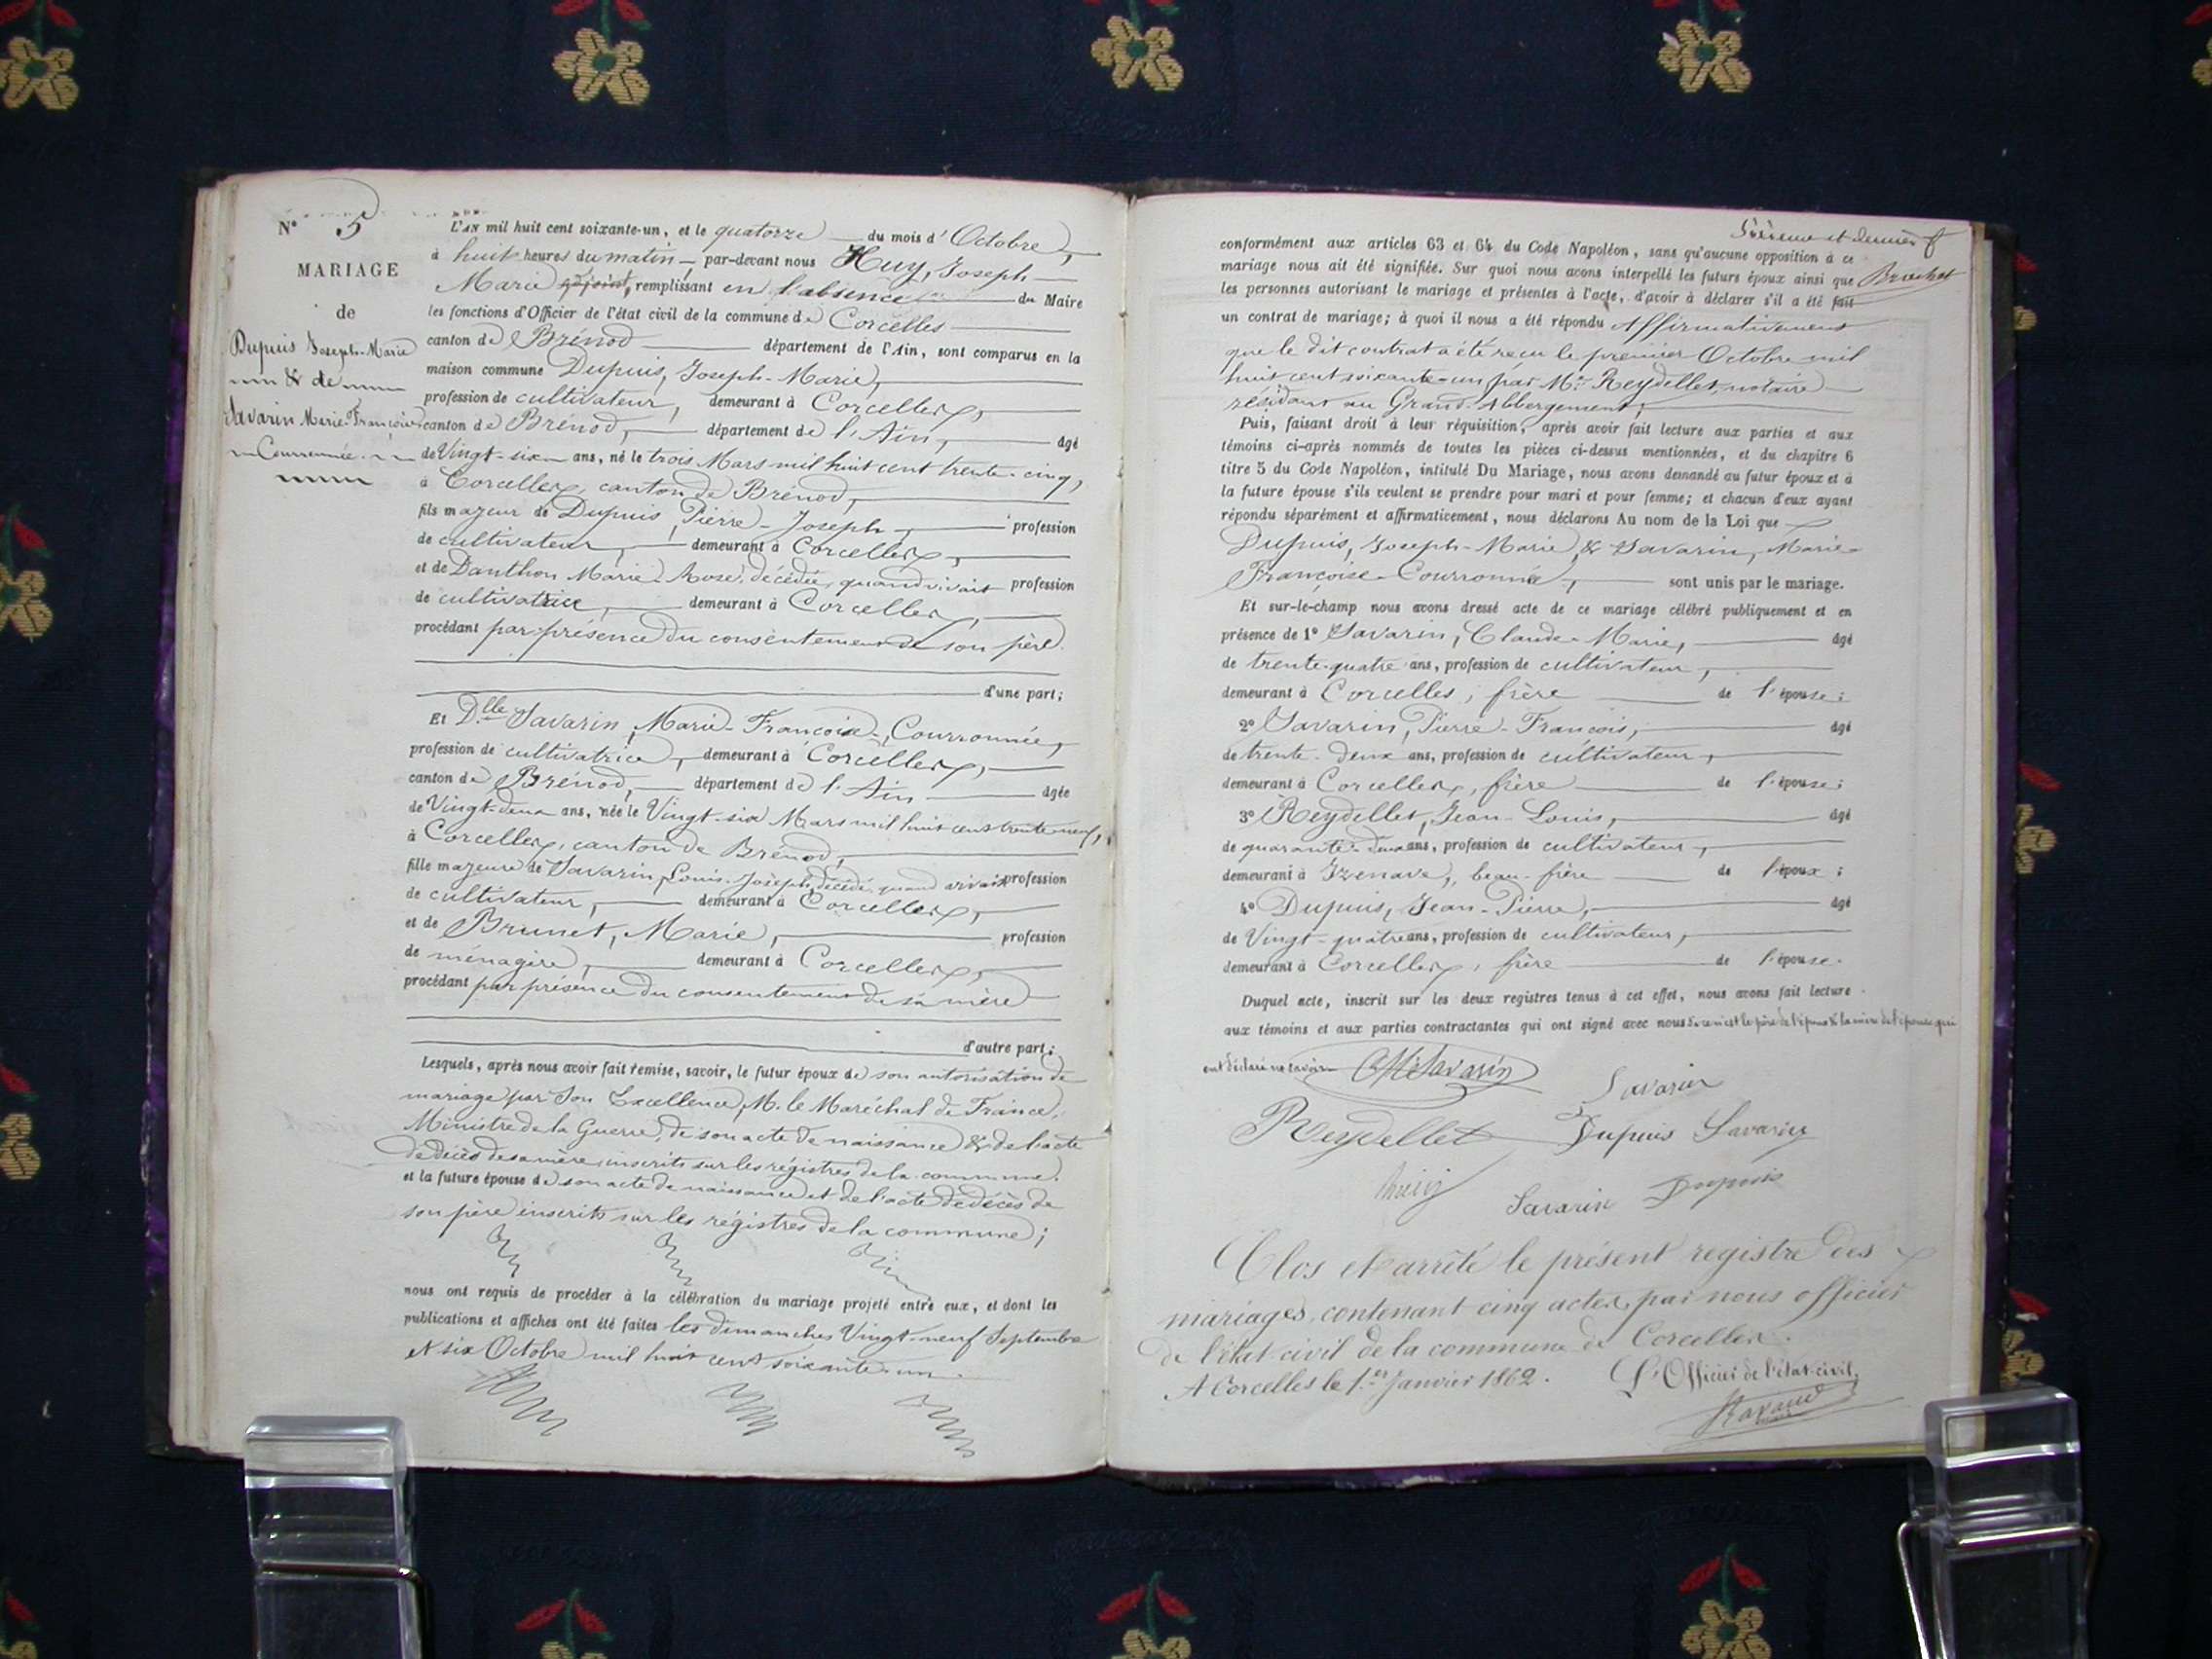 N° 5
MARIAGE
de
Dupuis Joseph-Marie
& de
Savarin Marie-Françoise
Couronnée
L'AN mil huit cent soixante-un, et le quatorze du mois d'Octobre,
à huit heures du matin, par-devant nous Huy, Joseph
Marie adjoint, remplissant en l'absence du Maire
les fonctions d'Officier de l'état civil de la commune de Corcelles
canton de Brénod département de l'Ain, sont comparus en la
maison commune Dupuis, Joseph-Marie,
profession de cultivateur, demeurant à Corcelles,
canton de Brénod, département de l'Ain, âgé
de Vingt-six ans, né le trois Mars mil huit cent trente-cinq,
à Corcelles, canton de Brénod,
fils majeur de Dupuis, Pierre-Joseph, profession
de cultivateur, demeurant à Corcelles,
et de Danthon Marie-Rose, décédée, quand vivait profession
de cultivatrice, demeurant à Corcelles,
procédant par présence du consentement de son père.
d'une part;
Et Dlle Savarin, Marie-Françoise-, Courronnée,
profession de cultivatrice, demeurant à Corcelles,
canton de Brénod, département de l'Ain âgée
de Vingt-deux ans, née le Vingt-six Mars mil huit cent trente-neuf,
à Corcelles, canton de Brénod,
fille majeure de Savarin, Louis-Joseph, décédé, quand vivait profession
de cultivateur, demeurant à Corcelles,
et de Brunet, Marie, profession
de ménagère, demeurant à Corcelles,
procédant par présence du consentement de sa mère
d'autre part;
Lesquels, après nous avoir fait remise, savoir, le futur époux de son autorisation de
mariage par Son Excellence, M. le Maréchal de France,
Ministre de la Guerre, de son acte de naissance & de l'acte
de décès de sa mère inscrits sur les régistres de la commune.
et la future épouse de son acte de naissance et de l'acte de décès de
son père inscrits sur les régistres de la commune;
nous ont requis de procéder à la célébration du mariage projeté entre eux, et dont les
publications et affiches ont été faites les dimanches Vingt-neuf Septembre
et six Octobre mil huit cent soixante-un.
et dernier
Brochet
conformément aux articles 63 et 64 du Code Napoléon, sans qu'aucune opposition à ce
mariage nous ait été signifiée. Sur quoi nous avons interpellé les futurs époux ainsi que
les personnes autorisant le mariage et présentes à l'acte, d'avoir à déclarer s'il a été fait
un contrat de mariage; à quoi il nous a été répondu Affirmativement
que le dit contrat a été reçu le premier Octobre mil
huit cent soixante-un par Me Reydellet, notaire
résidant au Grand-Abbergement;
Puis, faisant droit à leur réquisition, après avoir fait lecture aux parties et aux
témoins ci-après nommés de toutes les pièces ci-dessus mentionnées, et du chapitre 6
titre 5 du Code Napoléon, intitulé Du Mariage, nous avons demandé au futur époux et à
la future épouse s'ils veulent se prendre pour mari et pour femme; et chacun d'eux ayant
répondu séparément et affirmativement, nous déclarons Au nom de la Loi que
Dupuis, Joseph-Marie & Savarin, Marie-
Françoise-Courronnée, sont unis par le mariage.
Et sur-le-champ nous avons dressé acte de ce mariage célébré publiquement et en
présence de 1° Savarin, Claude-Marie, âgé
de trente-quatre ans, profession de cultivateur,
demeurant à Corcelles, frère de l'épouse;
2° Savarin, Pierre-François, âgé
de trente-deux ans, profession de cultivateur,
demeurant à Corcelles, frère de l'épouse;
3° Reydellet, Jean-Louis, âgé
de quarante-deux ans, profession de cultivateur,
demeurant à Izenave, beau-frère de l'époux;
4° Dupuis, Jean-Pierre, âgé
de Vingt-quatre ans, profession de cultivateur,
demeurant à Corcelles, frère de l'épouse.
Duquel acte, inscrit sur les deux registres tenus à cet effet, nous avons fait lecture
aux témoins et aux parties contractantes qui ont signé avec nous si ce n'est le père de l'époux & la mère de l'épouse qui
ont déclaré ne savoir CM Savarin
Savarin
Reydellet Dupuis Savarin
Savarin Dupuis
Clos et arrêté le présent registre des
mariages, contenant cinq actes, par nous officier
de l'état-civil de la commune de Corcelles.
A Corcelles le 1er Janvier 1862. L'Officier de l'état-civil,